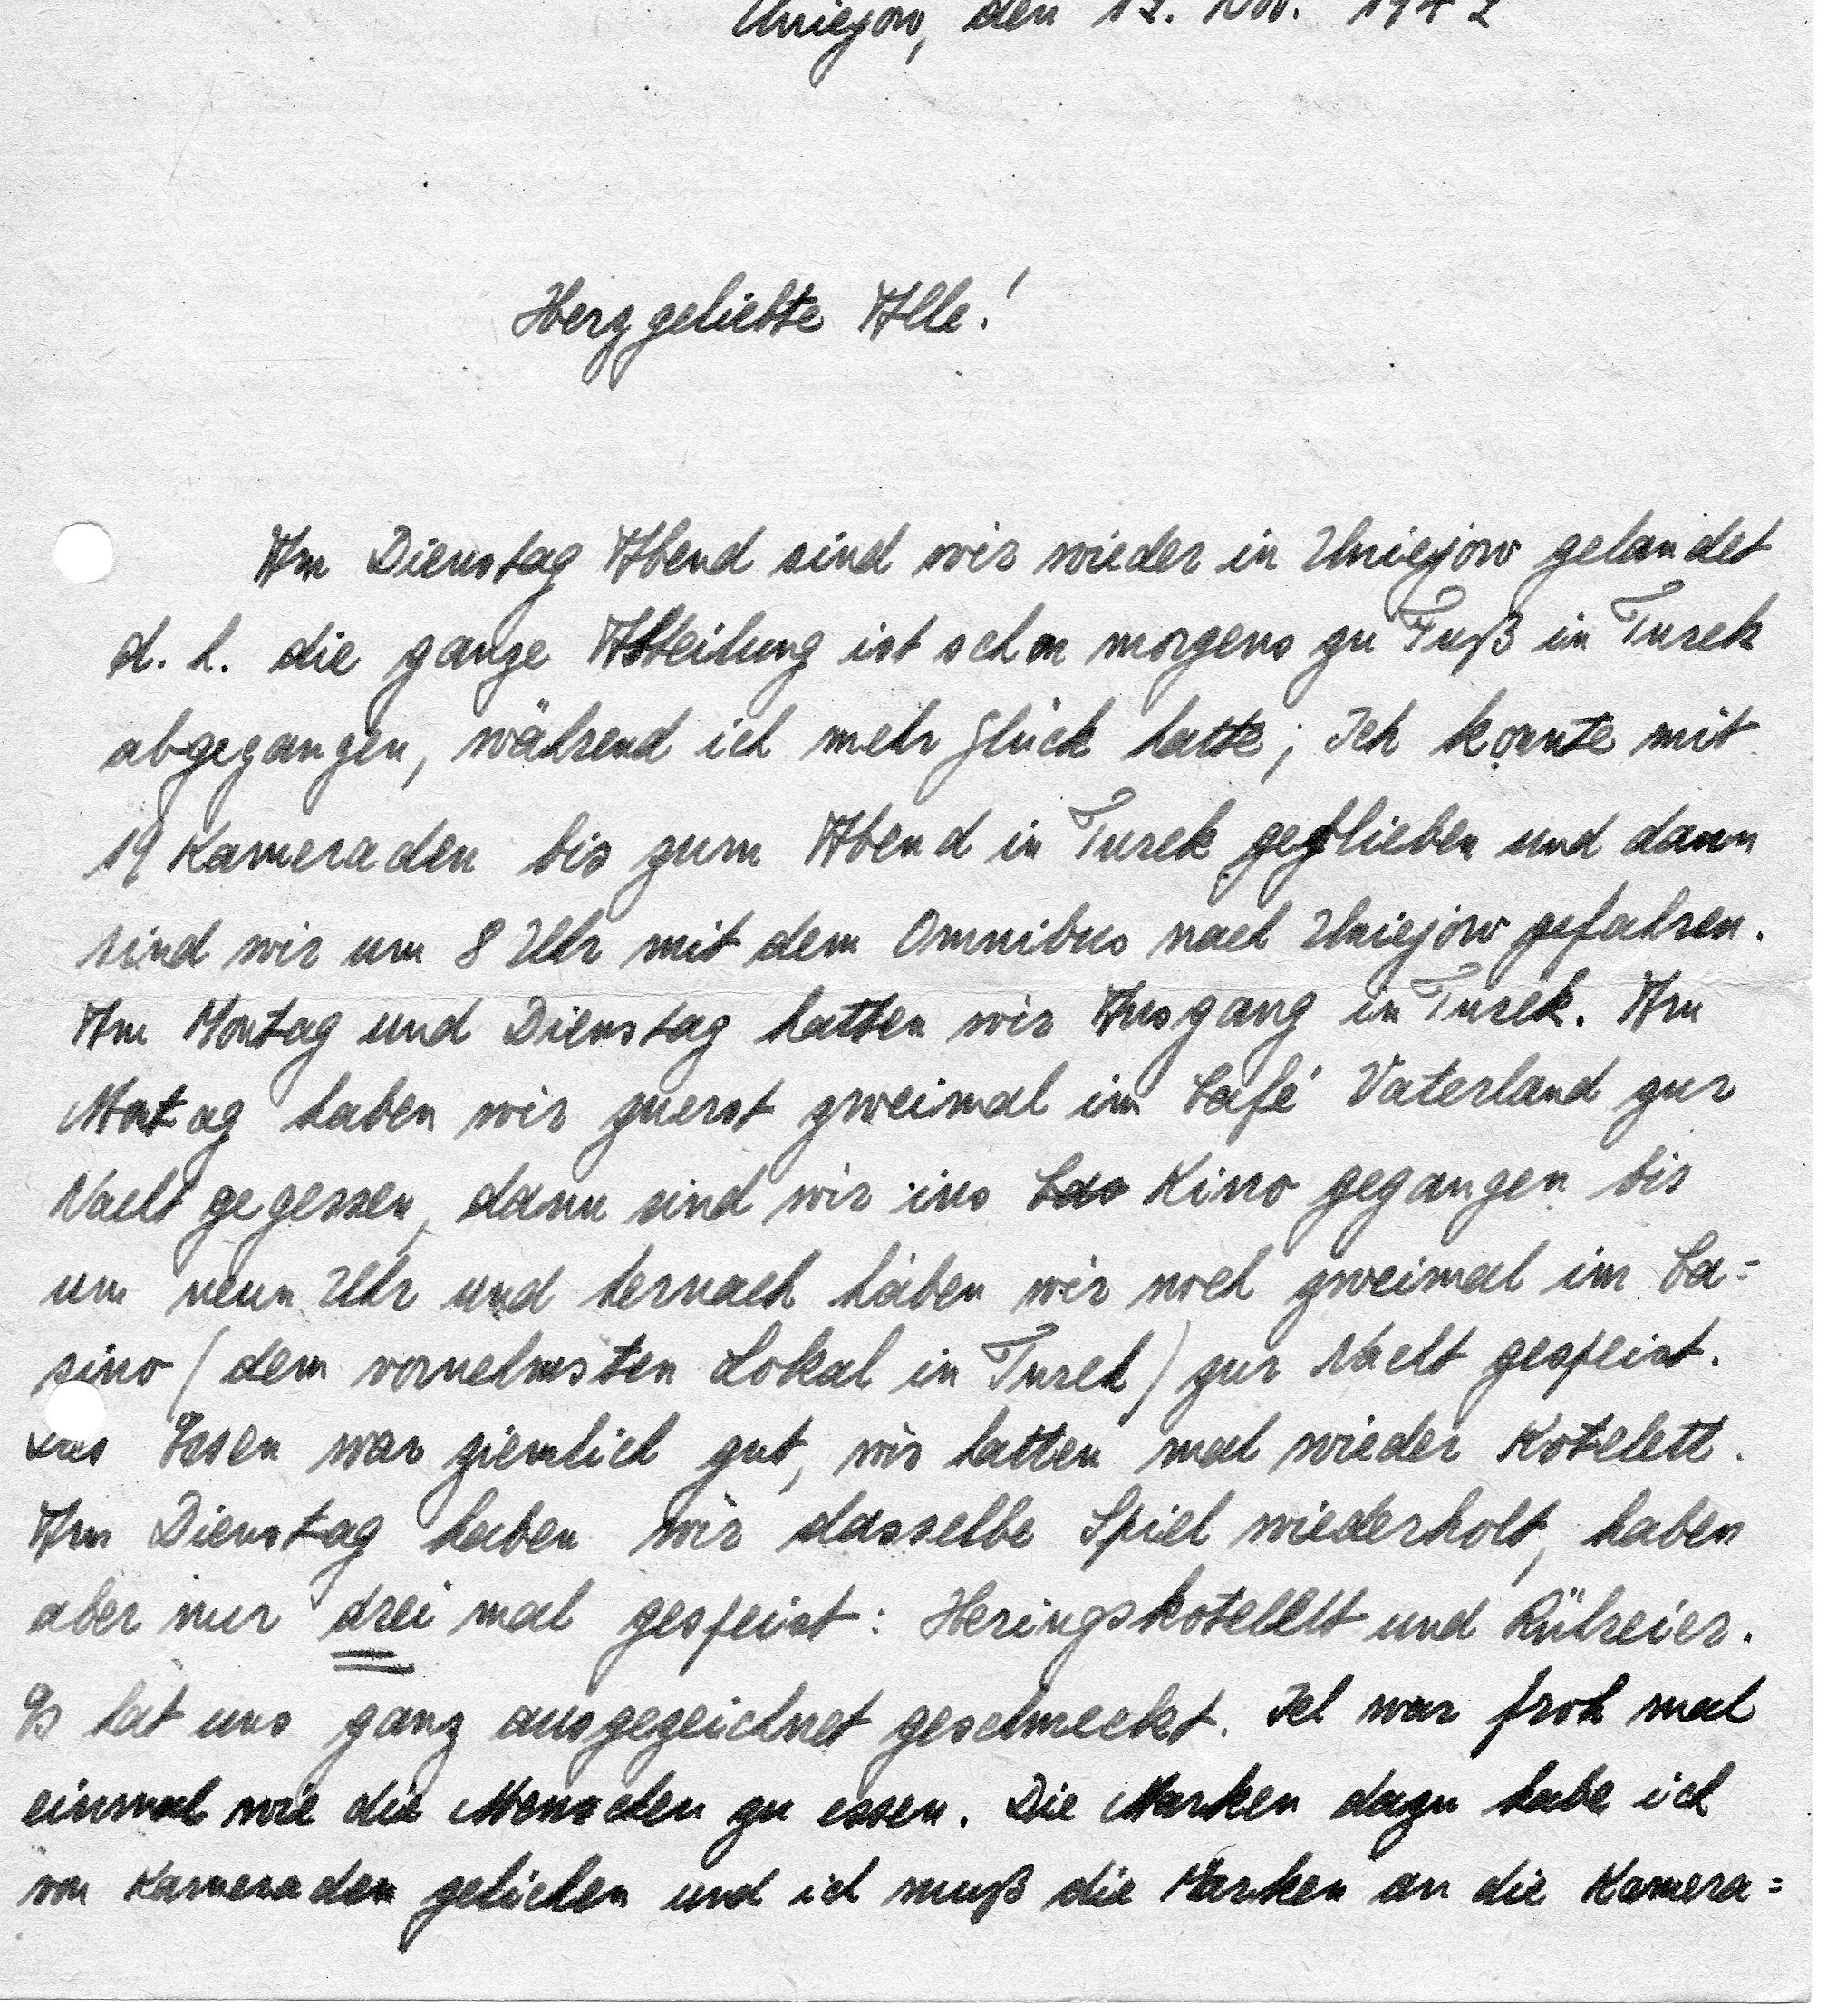 Uniejow, den 12. Nov. 1942
Herzgeliebte Alle!
Am Dienstag Abend sind wir wieder in Uniejow gelandet
d. h. die ganze Abteilung ist schon morgens zu Fuß in Turek
abgegangen, während ich mehr Glück hatte; Ich konnte mit
19 Kameraden bis zum Abend in Turek geblieben und dann
sind wir um 8 Uhr mit dem Omnibus nach Uniejow gefahren.
Am Montag und Dienstag hatten wir Ausgang in Turek. Am
Montag haben wir zuerst zweimal im Café Vaterland zur
Nacht gegessen, dann sind wir ins Cas Kino gegangen bis
um neun Uhr und hernach haben wir noch zweimal im Ca=
sino (dem vornehmsten Lokal in Turek) zur Nacht gespeist.
Das Essen war ziemlich gut, wir hatten mal wieder Kotelett.
Am Dienstag haben wir dasselbe Spiel wiederholt, haben
aber nur drei mal gespeist: Heringskotellett und Rühreier.
Es hat uns ganz ausgezeichnet geschmeckt. Ich war froh mal
einmal wie die Menschen zu essen. Die Marken dazu habe ich
von Kameraden geliehen und ich muß die Marken an die Kamera=